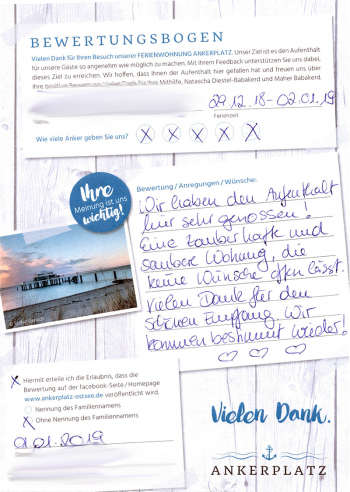 BEWERTUNGSBOGEN
Vielen Dank für Ihren Besuch unserer FERIENWOHNUNG ANKERPLATZ. Unser Ziel ist es den Aufenthalt
für unsere Gäste so angenehm wie möglich zu machen. Mit Ihrem Feedback unterstützen Sie uns dabei,
dieses Ziel zu erreichen. Wir hoffen, dass Ihnen der Aufenthalt hier gefallen hat und freuen uns über
Ihre positive Bewertung. Vielen Dank für Ihre Mithilfe, Natascha Diestel-Babakerd und Maher Babakerd.
29.12.18-02.01.19
Ferienzeit
Wie viele Anker geben Sie uns?
X X X X X
Ihre
Meinung ist uns
wichtig!
Bewertung / Anregungen / Wünsche:
Wir haben den Aufenthalt
hier sehr genossen!
Eine zauberhafte und
saubere Wohnung, die
keine Wünsche offen lässt.
Vielen Dank für den
schönen Empfang. Wir
kommen bestimmt wieder!
X Hiermit erteile ich die Erlaubnis, dass die
Bewertung auf der facebook-Seite / Homepage
www.ankerplatz-ostsee.de veröffentlicht wird.
Nennung des Familiennamens
X Ohne Nennung des Familiennamens
01.01.2019
Vielen Dank.
ANKERPLATZ